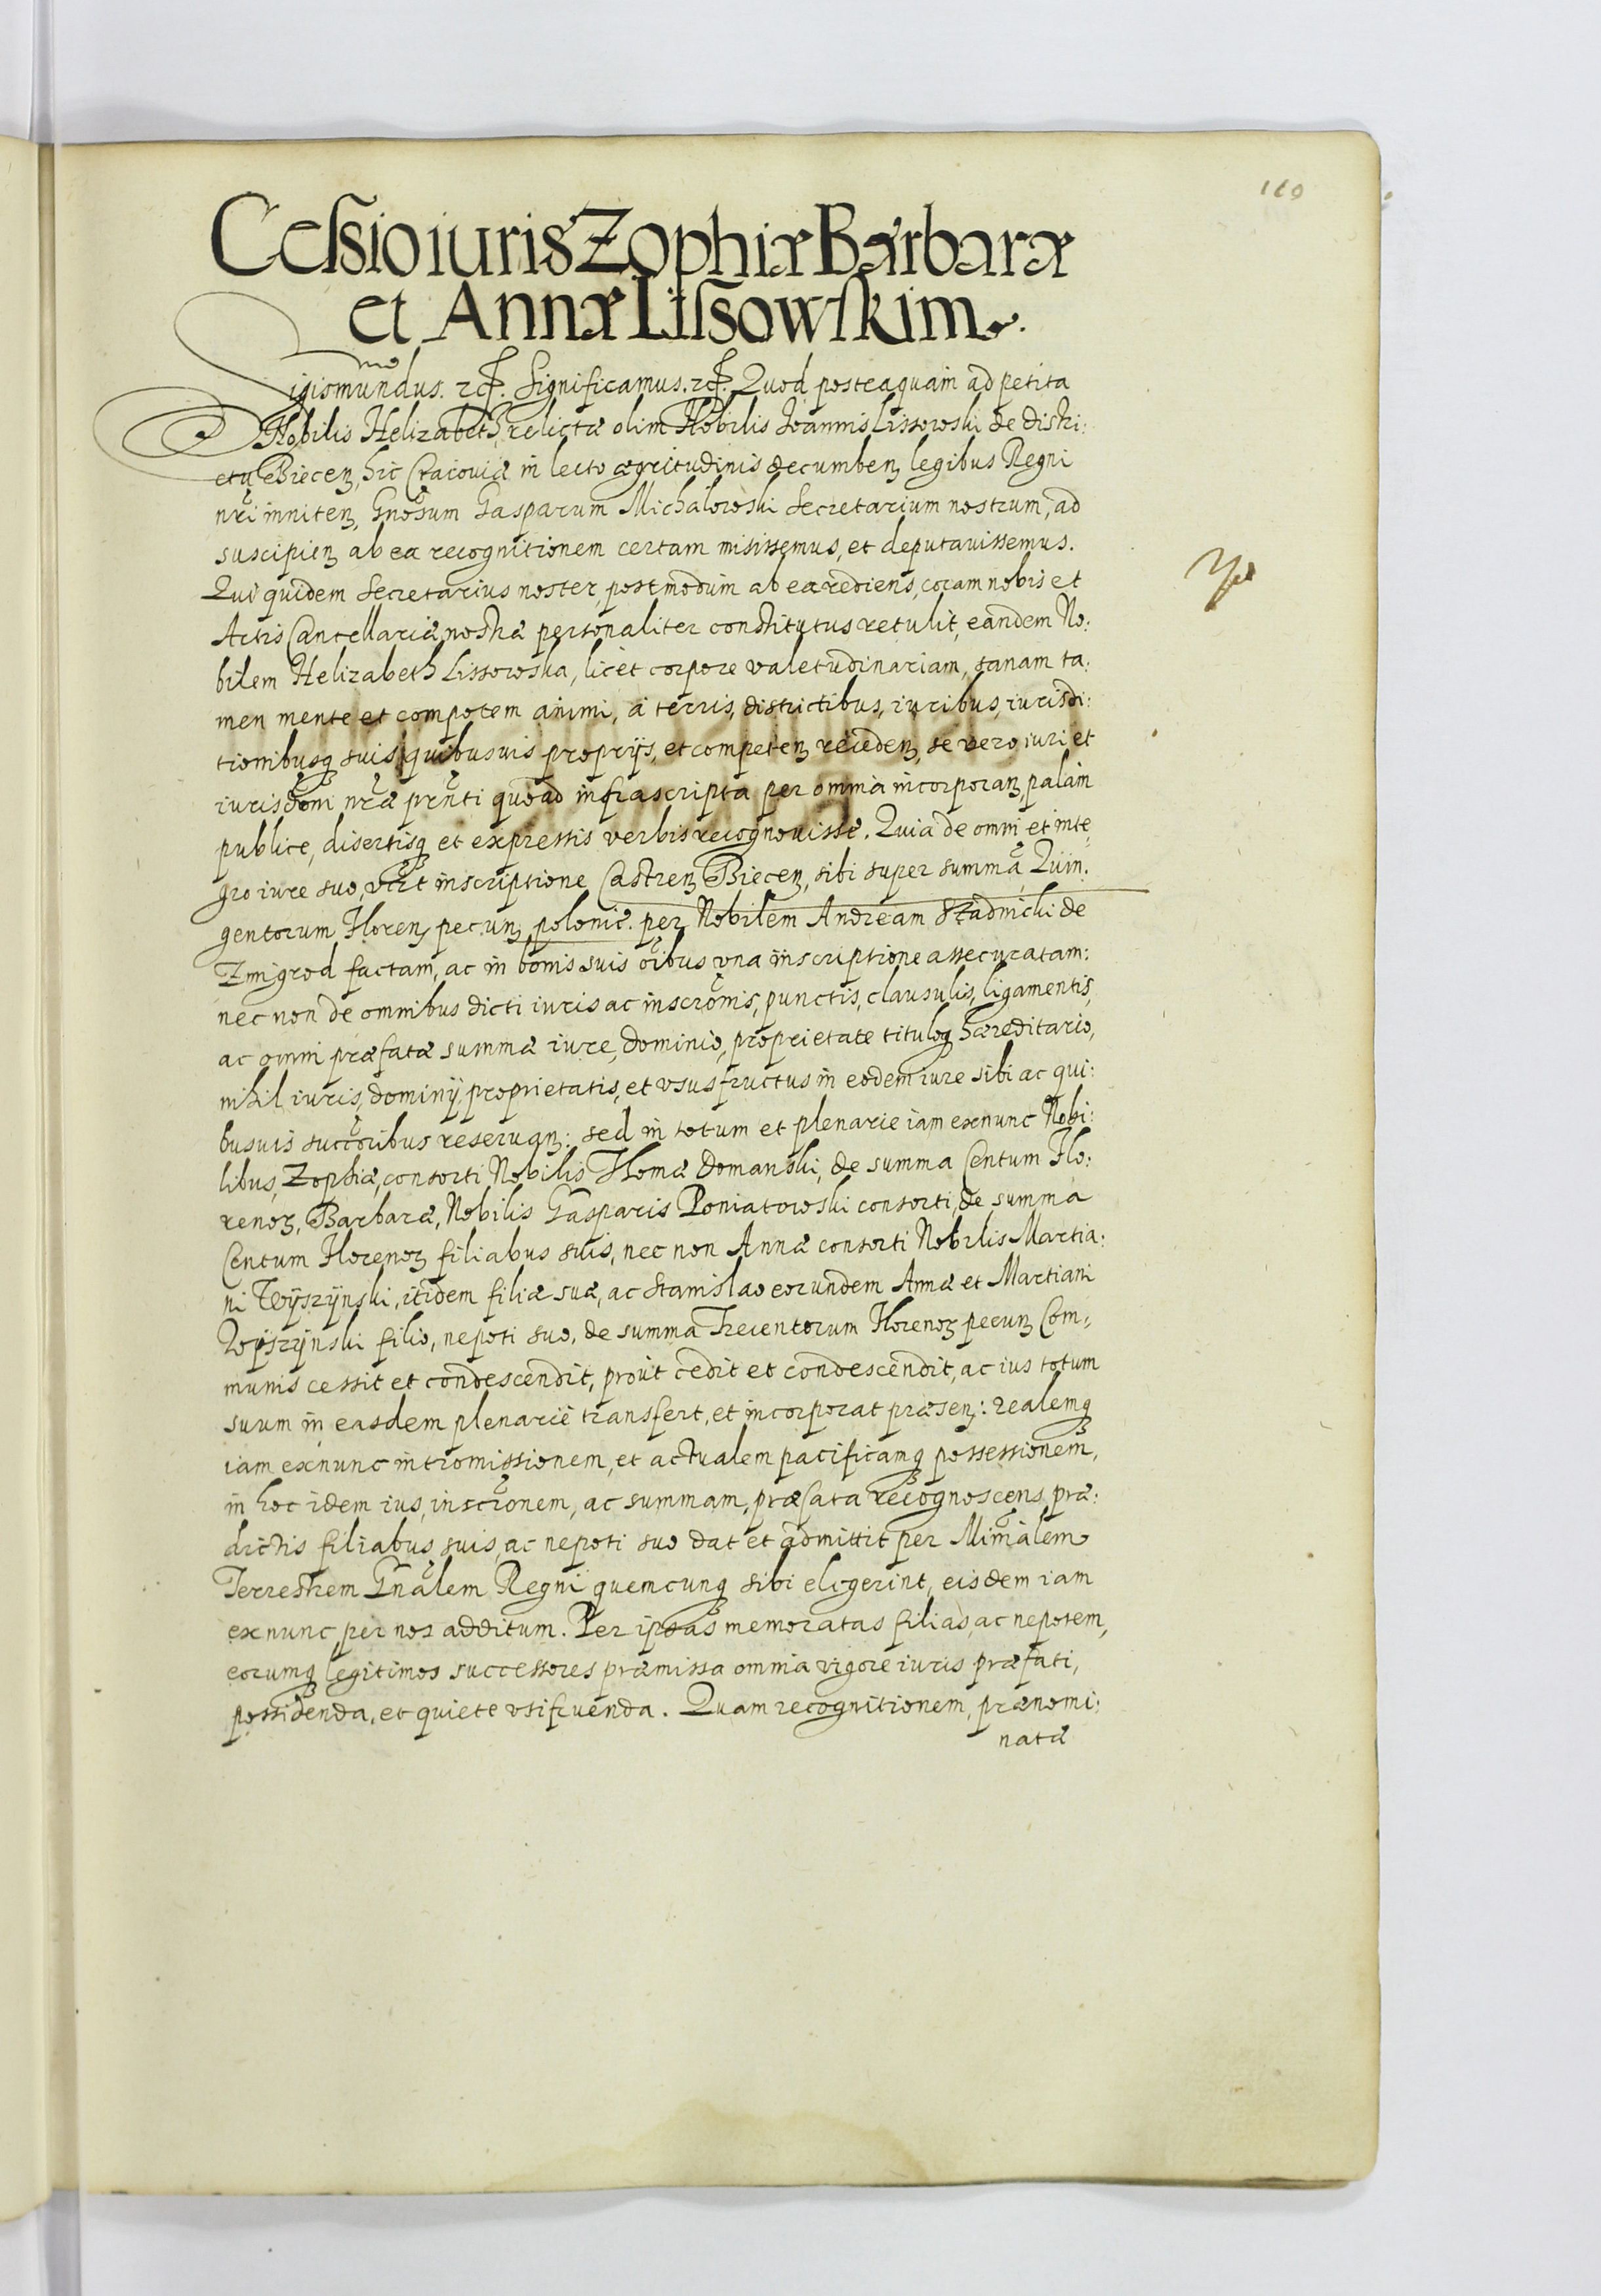 169
Cessio iuris Zophiæ Barbaræ
et Annæ Lissowskim.
Sigismundus. etc. Significamus. etc. Quod posteaquam ad petita
Nobilis Helizabeth, relictæ olim Nobilis Ioannis Lissowski de distri:
ctu Biecen, hic Craioviæ in lecto ægritudinis decumben legibus Regni
nri inniten, Gnosum Gasparum Michalowski Secretarium nostrum, ad
suscipien ab ea recognitionem certam misissemus, et deputauissemus.
Qui quidem Secretarius noster, postmodum ab ea rediens, coram nobis et
Actis Cancellariæ nostræ personaliter constitutus retulit, eandem No:
bilem Helizabeth Lissowska, licet corpore valetudinariam, sanam ta:
men mente et compotem animi, a terris, districtibus, iuribus, iurisdi:
tionibusq suis quibusuis proprijs, et competen receden, se vero iuri et
iurisdoni nræ prnti quoad infrascripta per omnia incorporan, palam
publice, disertisq et expressis verbis recognouisse. Quia de omni et inte:
gro iure suo, vert inscriptione Castren Biecen, sibi super summa Quin:
gentorum Floren pecun polonic. per Nobilem Andream Stadnicki de
Zmigrod factam, ac in bonis suis oibus vna inscriptione assecuratam:
nec non de omnibus dicti iuris ac inscronis, punctis, clausulis, ligamentis,
ac omni præfatæ summæ iure, dominio, proprietate tituloq hæreditario,
nihil iuris, dominij, proprietatis, et vsusfructus in eodem iure sibi ac qui:
busuis succoribus reseruan: sed in totum et plenarie iam exnunc Nobi:
libus, Zophiæ, consorti Nobilis Thomæ Domanski, de summa Centum Flo:
renoz, Barbaræ, Nobilis Gasparis Poniatowski consorti, de summa
Centum Florenoz filiabus suis, nec non Annæ consorti Nobilis Martia:
ni Wÿszÿnski, itidem filiæ suæ, ac Stanislao eorundem Annæ et Martiani
Wÿszÿnski filio, nepoti suo, de summa Trecentorum Florenoz pecun Com:
munis cessit et condescendit, prout cedit et condescendit, ac ius totum
suum in easdem plenarie transfert, et incorporat præsen: realemq
iam exnunc intromissionem, et actualem pacificamq possessionem,
in hoc idem ius, inscrionem, ac summam, præfata recognoscens, præ:
dictis filiabus suis, ac nepoti suo dat et admittit per Minialem
Terrestrem Gnalem Regni quemcunq sibi elegerint, eisdem iam
exnunc per nos additum. Per ipsas memoratas filias, ac nepotem,
eorumq legitimos successores præmissa omnia vigore iuris præfati,
possidenda, et quiete vsifruenda. Quam recognitionem, prænomi:
natæ